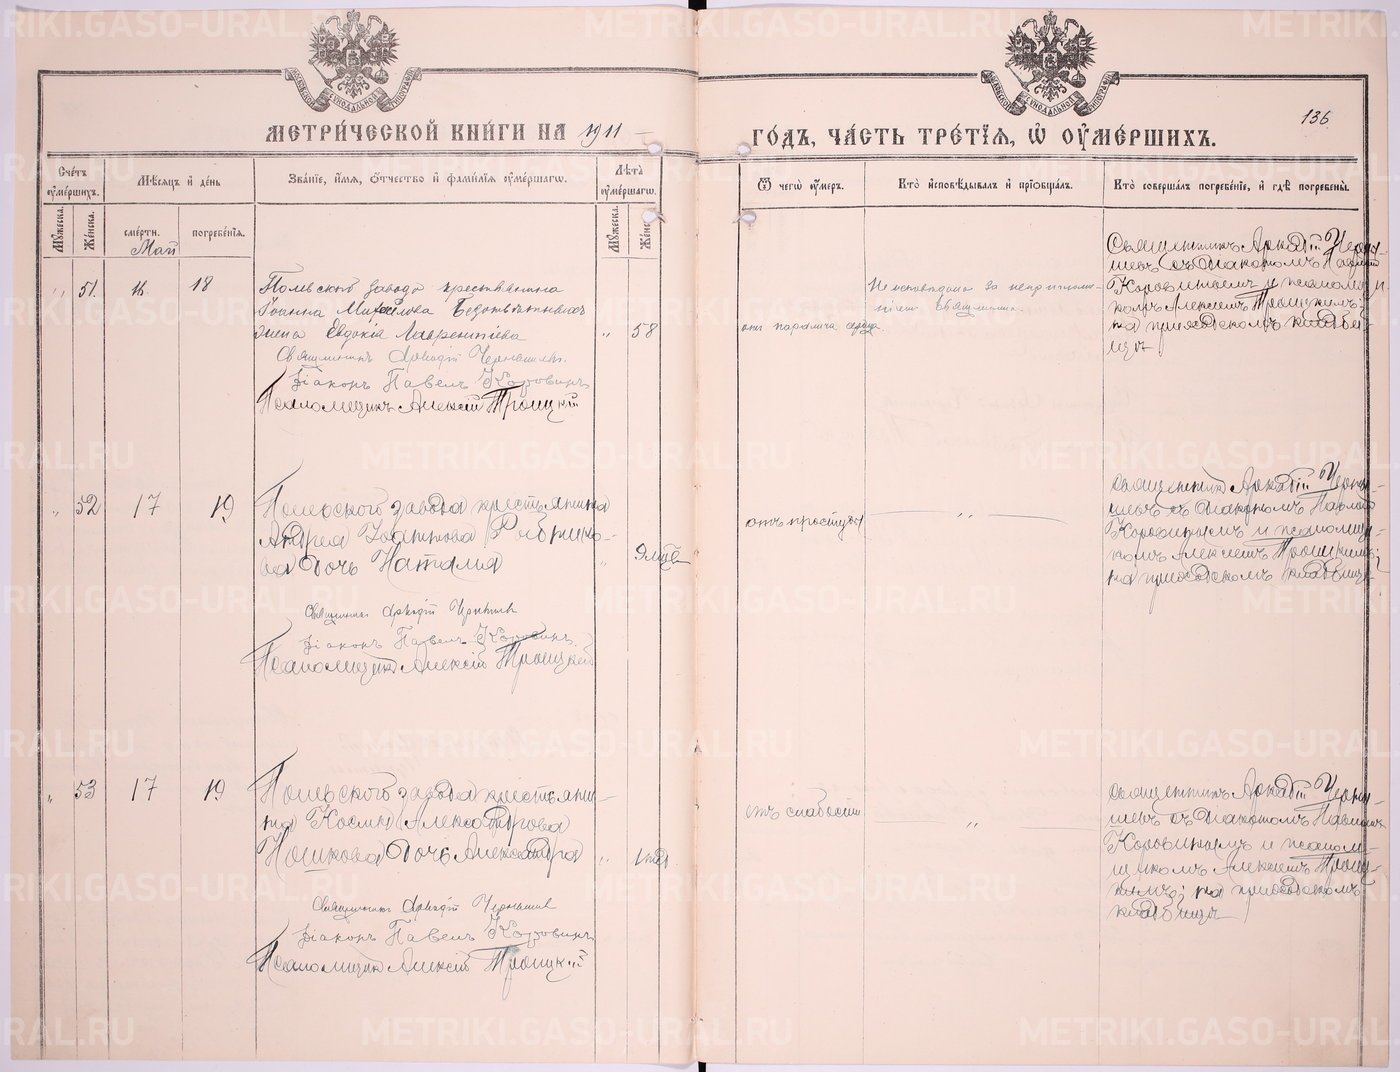 МЕТРИ́ЧЕСКОЙ КНИ́ГИ НА 1911
ГО́ДЪ, ЧА́СТЬ ТРЕ́ТЇѦ, Ѿ ОУМЕ́РШИХЪ.
136
Сче́тъ оуме́ршихъ.
Мѣ́сяцъ и де́нь
Зва́нїе, и́мя, о́тчество и фами́лїя оуме́ршаго.
Лѣ́та оуме́ршаго.
Ѿ чего̀ оу́меръ.
Кто̀ исповѣ́дывалъ и прїобща́лъ.
Кто̀ соверша́лъ погребе́нїе, и гдѣ̀ погребены̀.
Му́жеска.
Же́нска.
сме́рти.
погребе́нїя.
Му́жеска.
Же́нс
Май
" 51. 16. 18
Полевского завода крестьянина
Іоанна Михайлова
жена Евдокія Лаврентіева
" 58
Священникъ Аркадій Чернышевъ
Діаконъ Павелъ Коровинъ
Псаломщикъ Алексій Троицкій
отъ паралича сердца.
Не исповѣдана за
Священникъ Аркадій Черны-
шевъ съ діакономъ Павломъ
Коровинымъ и псаломщи-
комъ Алексѣемъ Троицкимъ;
на приходскомъ кладби-
щѣ
" 52 17 19
Полевского завода крестьянина
Андрея Іоаннова
ва дочь Наталія
"
Священникъ Аркадій Чернышевъ
Діаконъ Павелъ Коровинъ.
Псаломщикъ Алексій Троицкій
отъ простуды
"
Священникъ Аркадій Черны-
шевъ съ діакономъ Павломъ
Коровинымъ и псаломщи-
комъ Алексѣемъ Троицкимъ;
на приходскомъ кладбищѣ
" 53 17 19
Полевского завода крестьяни-
на Космы Александрова
Кошкова дочь Александра
"
Священникъ Аркадій Чернышевъ
Діаконъ Павелъ Коровинъ
Псаломщикъ Алексій Троицкій
отъ слабости
"
Священникъ Аркадій Черны-
шевъ съ діакономъ Павломъ
Коровинымъ и псалом-
щикомъ Алексѣемъ Троиц-
кимъ; на приходскомъ
кладбищѣ
METRIKI.GASO-URAL.RU